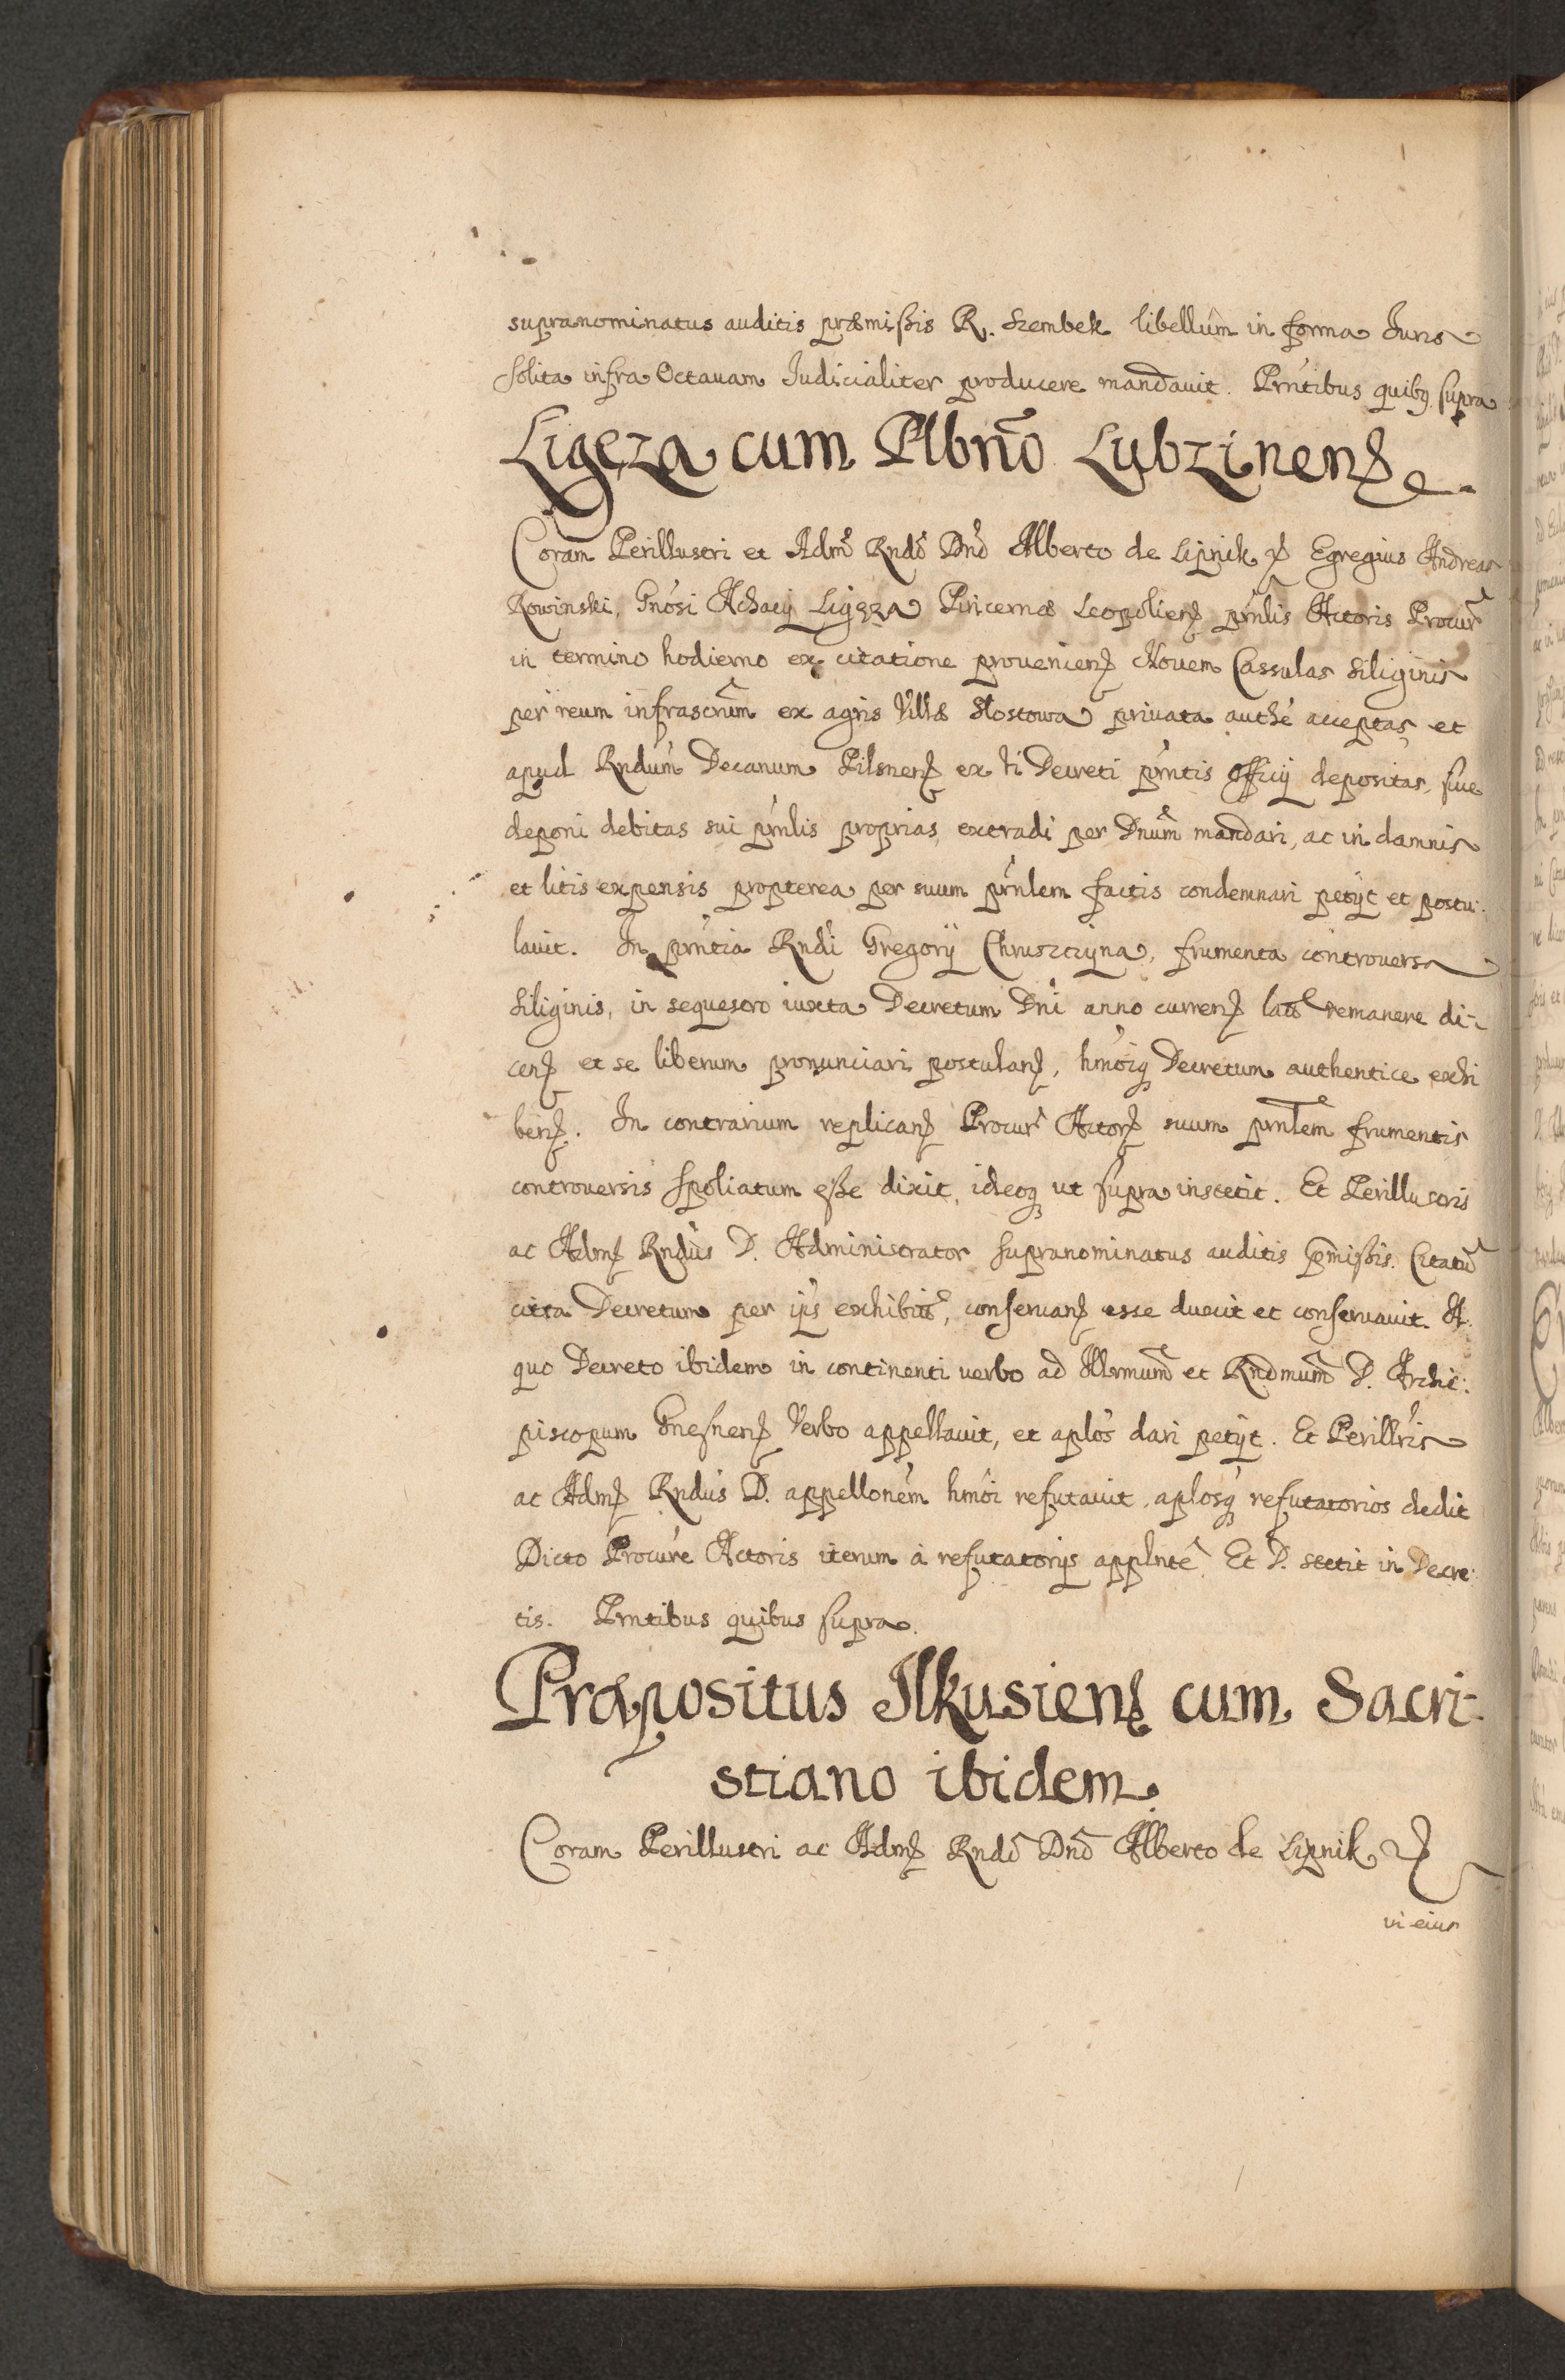 supranominatus auditis præmissis R. Szembek libellum in forma Iuris
solita infra Octauam Iudicialiter producere mandauit. Prntibus quibq supra
Ligęza cum Plbno Lubzinens
Coram Perillustri et Adm Rndo Dno Alberto de Lipnik Egregius Andreas
Rowinski, Gnosi Achacij Ligęza Pincernæ Leopoliens prnlis Actoris Procur
in termino hodierno ex citatione proueniens Nouem Cassulas siliginis
per reum infrascrum ex agris Villæ Mostowa priuata authe acceptas et
apud Rndum Decanum Pilsnens ex ti Decreti prntis officij depositas, siue
deponi debitas sui prnlis proprias extradi per Dnum mandari, ac in damnis
et litis expensis propterea per suum prnlem factis condemnari petijt et postu:
lauit. In prntia Rndi Gregorij Chruszczyna, frumenta controuersa
siliginis, in sequestro iuxta Decretum Dni anno currens lato remanere di:
cens et se liberum pronunciari postulans, hmoiq Decretum authentice exhi
bens. In contrarium replicans Procur Actors suum prnlem frumentis
controuersis spoliatum esse dixit, ideoq ut supra institit. Et Perillustris
ac Adms Rndus D. Administrator supranominatus auditis pmissis. Citatu
citra Decretum per ips exhibit, conseruans esse duxit et conseruauit. A
quo Decreto ibidem in continenti verbo ad Illrmum et Rndmum D. Archie:
piscopum Gnesnens Verbo appellauit, et aplos dari petijt. Et Perillris
ac Adms Rndus D. appellonem hmoi refutauit, aplosq refutatorios dedit
Dicto Procure Actoris iterum à refutatorijs applnte Et D. stetit in Decre:
tis. Prntibus quibus supra.
Præpositus Ilkusiens cum Sacri:
stiano ibidem.
Coram Perillustri ac Adms Rndo Dno Alberto de Lipnik
in eius